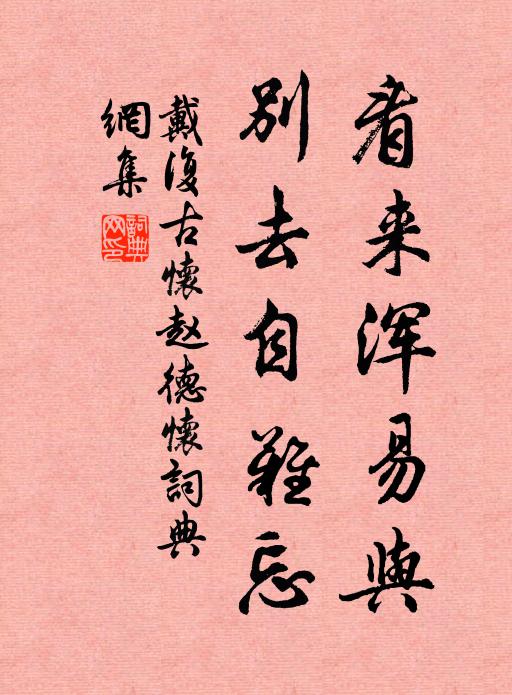 看来浑易與
别去自難忘
戴復古懷赵德懷詞典
網集
詞典网印